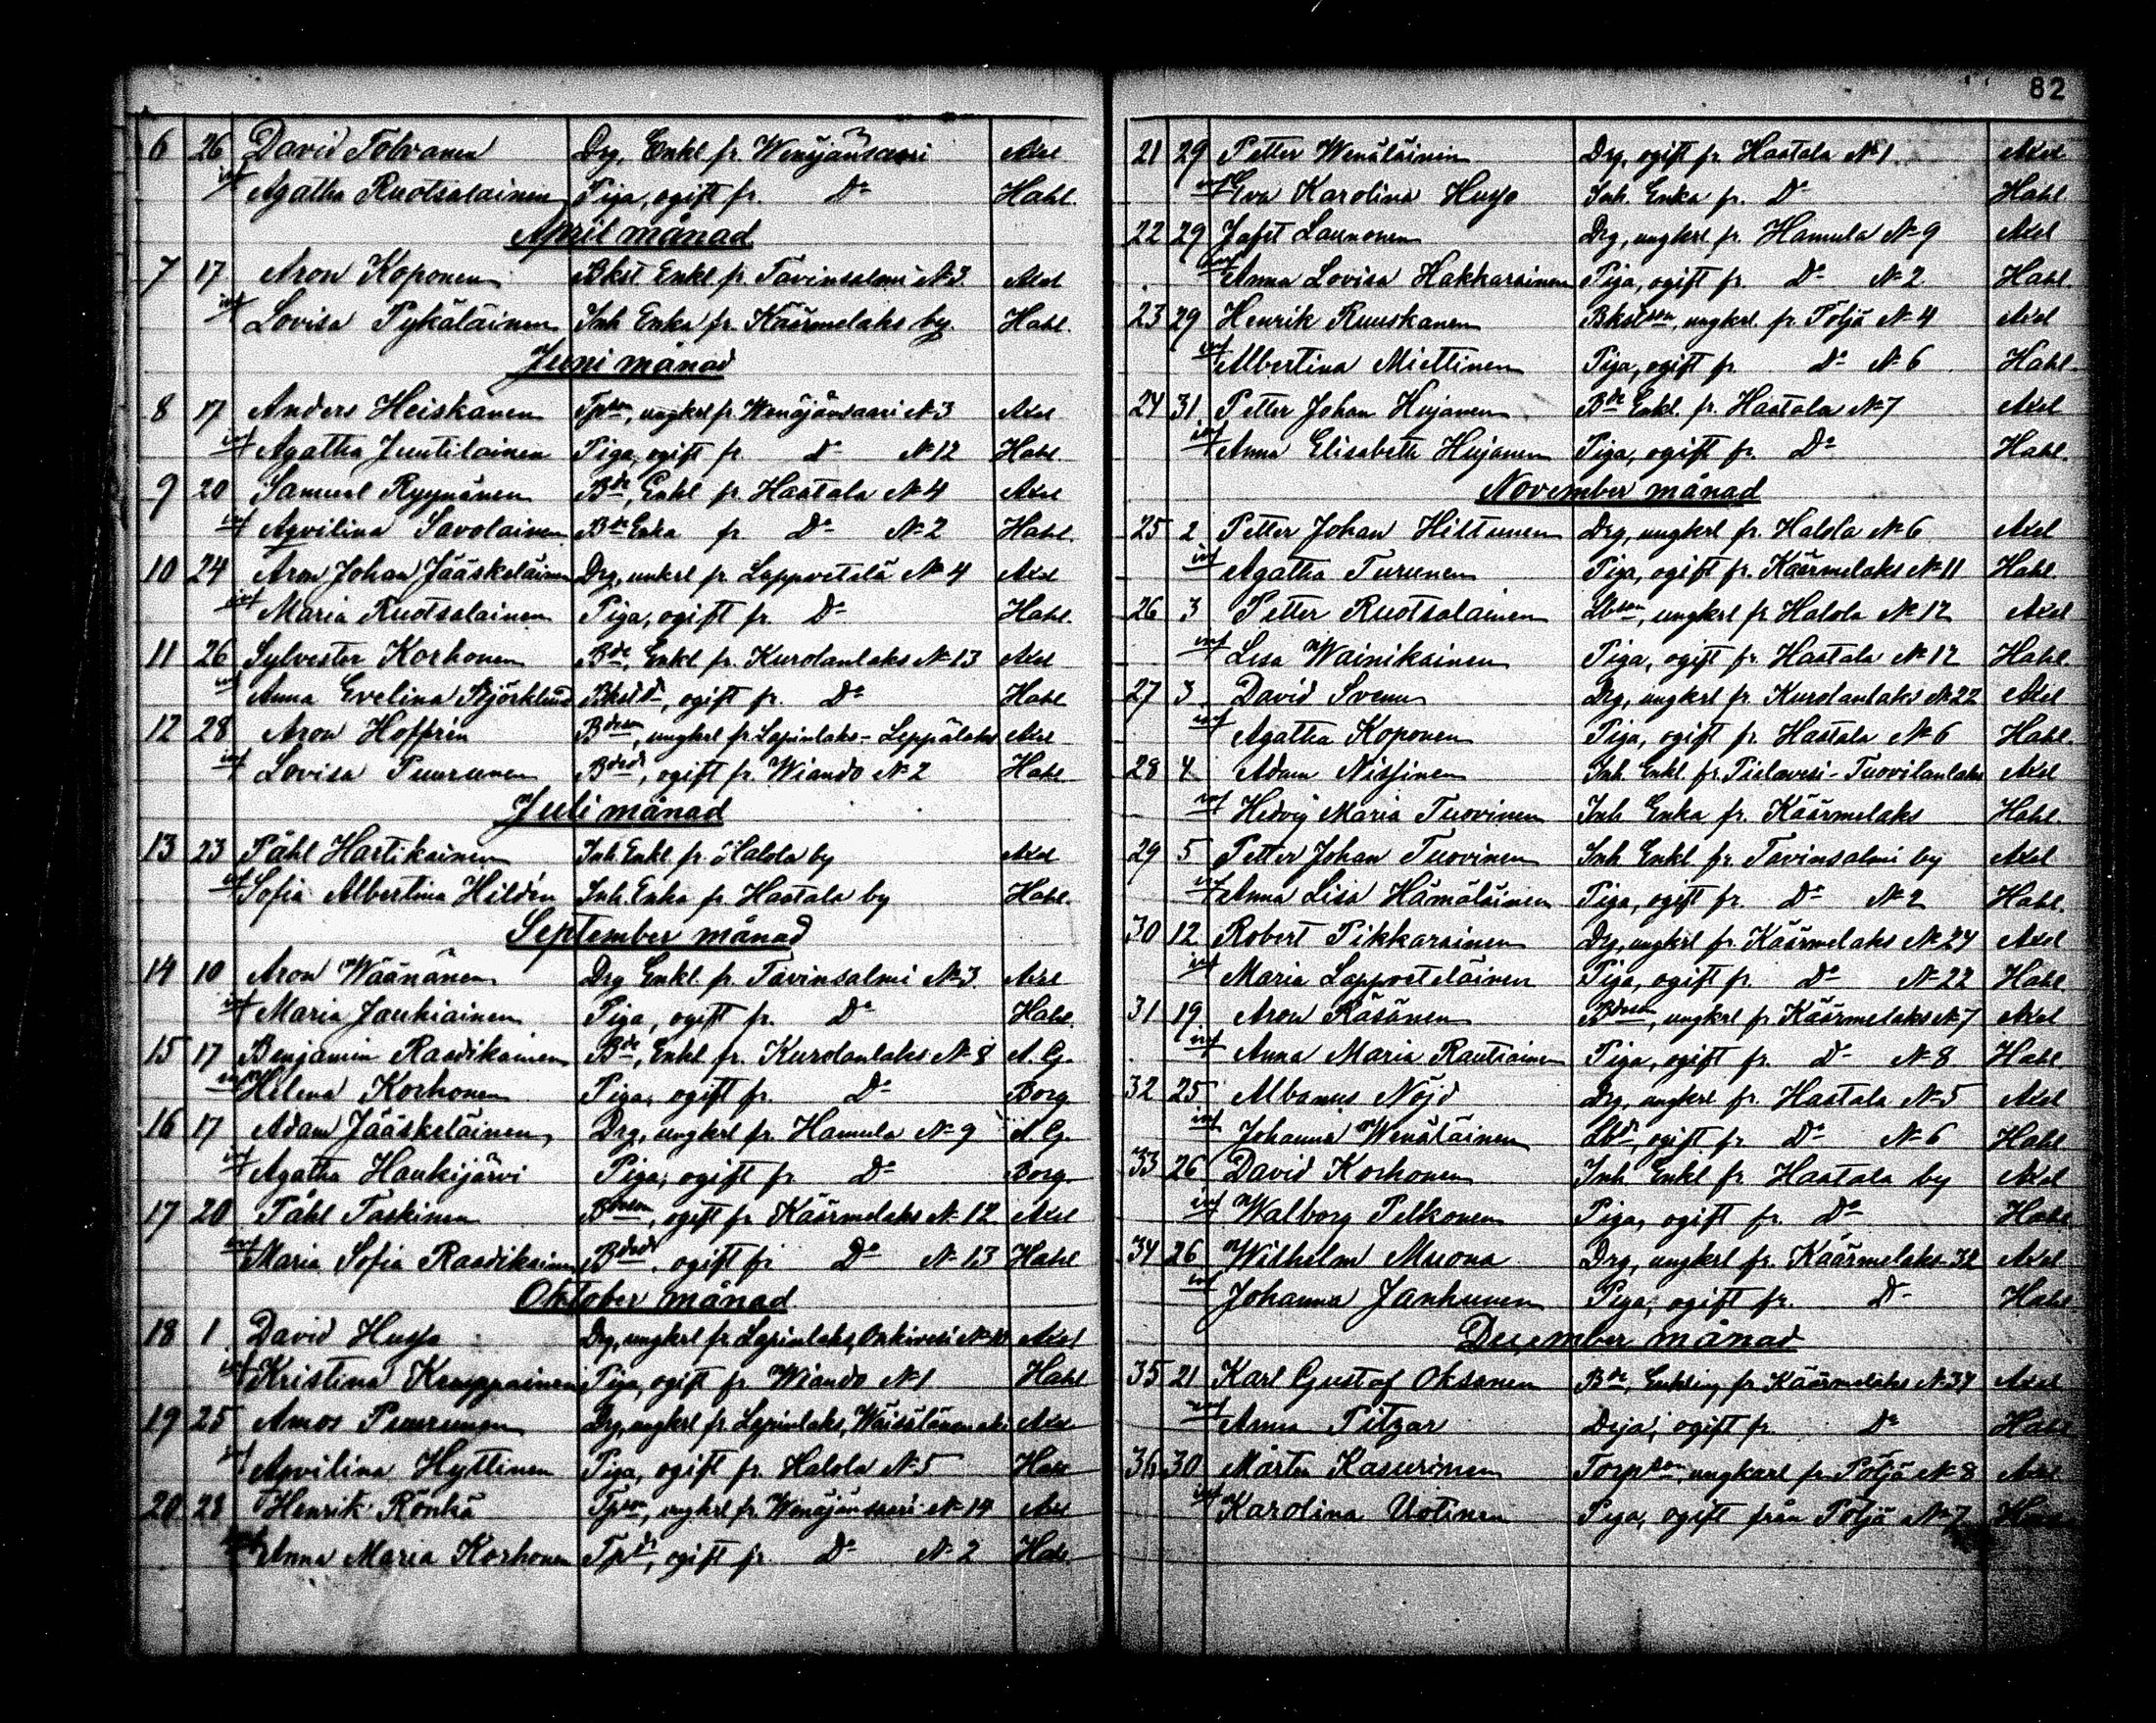 6 26 David Tolvanen Drg, Enkl fr. Wenäjänsaari Axel
inf Agatha Ruotsalainen Piga, ogift fr. Do Hahl.
April månad
7 17 Aron Koponen Bkst Enkl fr. Tavinsalmi No 3. Axel
inf Lovisa Pykäläinen Inh Enka fr. Käärmelaks by. Hahl.
Juni månad
8 17 Anders Heiskanen Tpson, ungkrl fr. Wenäjänsaari No 3 Axel
inf Agatha Juutilainen Piga, ogift fr. do No 12 Hahl
9 20 Samuel Ryynänen Bde, Enkl fr. Haatala No 4 Axel
inf Apvilina Savolainen Bde Enka fr. Do No 2 Hahl.
10 24 Aron Johan Jääskeläinen Drg, unkrl fr Lappvetelä No 4 Axel
inf Maria Ruotsalainen Piga, ogift fr. Do Hahl.
11 26 Sylvester Korhonen Bde, Enkl fr. Kurolanlaks No 13 Axel
inf Anna Evelina Björklund Bkstdr, ogift fr. Do Hahl
12 28 Aron Hoffrén Bdeson, ungkrl fr Lapinlaks-Leppälaks Axel
inf Lovisa Puurunen Bdedr, ogift fr. Wiando No 2 Hahl.
Juli månad
13 23 Påhl Hartikainen Inh Enkl fr Halola by Axel
inf Sofia Albertina Hildén Inh. Enka fr Haatala by Hahl.
September månad
14 10 Aron Wäänänen Drg Enkl. fr. Tavinsalmi No 3. Axel
inf Maria Jauhiainen Piga, ogift fr. Do Hahl.
15 17 Benjamin Raadikainen Bde, Enkl fr. Kurolanlaks No 8 A. G.
inf Helena Korhonen Piga, ogift fr. Do Borg
16 17 Adam Jääskeläinen, Drg, ungkrl fr. Hamula No 9 A. G.
inf Agatha Haukijärvi Piga, ogift fr. Do Borg.
17 20 Påhl Taskinen Bdeson, ogift fr Käärmelaks No 12 Axel
inf Maria Sofia Raadikainen Bdedr, ogift fr Do No 13 Hahl
Oktober månad
18 1 David Hujo Drg, ungkrl fr Lapinlaks, Onkivesi No 10 Axel
inf Kristina Kauppainen Piga, ogift fr. Wiando No 1 Hahl
19 25 Amos Puurunen Drg, ungkrl fr. Lapinlaks, Axel
inf Apvilina Hyttinen Piga, ogift fr. Halola No 5 Hahl
20 28 Henrik Rönkä Tpson, ungkrl fr. Wenäjänsaari No 14 Axel
inf Anna Maria Korhonen Tpdr, ogift fr. Do No 2 Hahl.
82
21 29 Petter Wenäläinen Drg, ogift fr Haatala No 1. Axel
inf Eva Karolina Hujo Inh. Enka fr. Do Hahl.
22 29 Jafet Launonen Drg, ungkrl fr. Hamula No 9 Axel
inf Anna Lovisa Hakkarainen Piga, ogift fr. Do No 2 Hahl.
23 29 Henrik Ruuskanen Bkstson, ungkrl. fr. Pöljä No 4 Axel
inf Albertina Miettinen Piga, ogift fr. Do No 6 Hahl.
24 31 Petter Johan Hujanen Bde Enkl. fr. Haatala No 7 Axel
inf Anna Elisabeth Hujanen Piga, ogift fr. Do Hahl.
November månad
25 2 Petter Johan Hiltunen Drg, ungkrl fr. Halola No 6 Axel
inf Agatha Turunen Piga, ogift fr. Käärmelaks No 11 Hahl.
26 3 Petter Ruotsalainen Lbson, ungkrl fr Halola No 12 Axel
inf Lisa Wainikainen Piga, ogift fr. Haatala No 12 Hahl.
27 3 David Svenn Drg, ungkrl fr Kurolanlaks No 22 Axel
inf Agatha Koponen Piga, ogift fr. Haatala No 6 Hahl.
28 4 Adam Nissinen Inh Enkl. fr. Pielavesi-Tuovilanlaks Axel
inf Hedvig Maria Tuovinen Inh Enka fr. Käärmelaks Hahl.
29 5 Petter Johan Tuovinen Inh Enkl fr. Tavinsalmi by Axel
inf Anna Lisa Hämäläinen Piga, ogift fr. Do No 2 Hahl.
30 12 Robert Pikkarainen Drg, ungkrl fr Käärmelaks No 24 Axel
inf Maria Lappveteläinen Piga, ogift fr. Do No 22 Hahl
31 19 Aron Räsänen Bdeson, ungkrl fr Käärmelaks No 7 Axel
inf Anna Maria Rautiainen Piga, ogift fr. Do No 8. Hahl.
32 25 Albanus Nöjd Drg, ungkrl fr. Haatala No 5 Axel
inf Johanna Wenäläinen Lbdr, ogift fr Do No 6 Hahl.
33 26 David Korhonen Inh Enkl fr Haatala by Axel
inf Walborg Pelkonen Piga, ogift fr. Do Hahl
34 26 Wilhelm Muona Drg, ungkrl fr. Käärmelaks 32 Axel
inf Johanna Janhunen Piga, ogift fr. Do Hahl.
December månad
35 21 Karl Gustaf Oksanen Bde, Enkling fr Käärmelaks No 34 Axel
inf Anna Pitzar Deja, ogift fr. Do Hahl
36 30 Mårten Kasurinen Torpson, ungkarl fr. Pöljä No 8 Axel
inf Karolina Uotinen Piga, ogift från Pöljä No 7